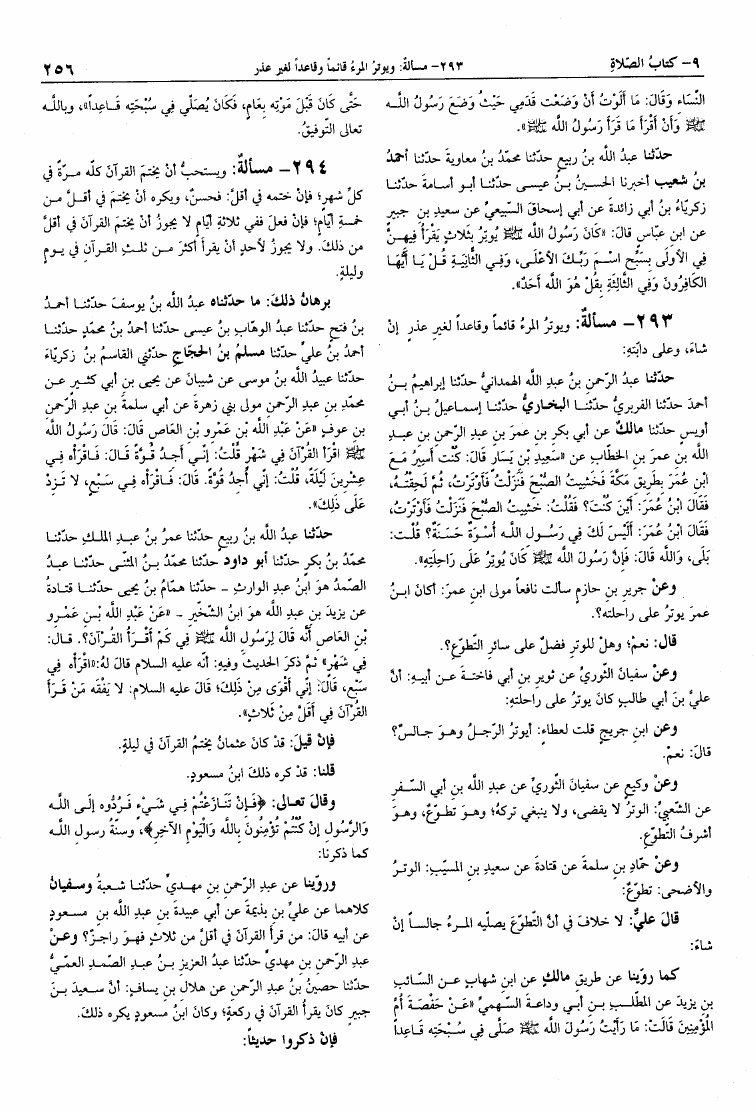 ٩- كتابُ الصّلاةِ
٢٩٣- مسألة: ويوترُ المرءُ قائماً وقاعداً لغير عذر
٢٥٦
النّسَاءِ وَقَالَ: مَا أَلَوْتُ أَنْ وَضَعْت قَدَمِي حَيْثُ وَضَعَ رَسُولُ اللَّه
ﷺ وَأَنْ أَقْرَأَ مَا قَرَأَ رَسُولُ اللَّه ﷺ».
حدّثنا عبدُ اللَّه بنُ ربيعٍ حدّثنا محمّدُ بنُ معاويةَ حدّثنا أحمدُ
بنُ شعيبٍ أخبرنا الحسينُ بنُ عيسى حدّثنا أبو أسامةَ حدّثنا
زكريّاءُ بنُ أبي زائدةَ عن أبي إسحاقَ السّبيعيِّ عن سعيدِ بنِ جبيرٍ
عن ابنِ عبّاسٍ قالَ: «كَانَ رَسُولُ اللَّه ﷺ يُوتِرُ بِثَلاثٍ يَقْرَأُ فِيهِنَّ
فِي الأُولَى بِسَبِّحِ اسْمَ رَبِّكَ الأَعْلَى، وَفِي الثَّانِيَةِ قُلْ يَا أَيُّهَا
الكَافِرُونَ وَفِي الثَّالِثَةِ بِقُلْ هُوَ اللَّه أَحَدٌ».
٢٩٣- مسألة: ويوترُ المرءُ قائماً وقاعداً لغيرِ عذرٍ إنْ
شاءَ، وعلى دابّتهِ:
حدّثنا عبدُ الرّحمنِ بنُ عبدِ اللَّه الهمدانيُّ حدّثنا إبراهيمُ بنُ
أحمدَ حدّثنا الفربريُّ حدّثنا البخاريُّ حدّثنا إسماعيلُ بنُ أبي
أويسٍ حدّثنا مالكٌ عن أبي بكرِ بنِ عمرَ بنِ عبدِ الرّحمنِ بنِ عبدِ
اللَّه بنِ عمرَ بنِ الخطّابِ عن «سَعِيدِ بْنِ يَسَارٍ قَالَ: كُنْت أَسِيرُ مَعَ
ابْنِ عُمَرَ بِطَرِيقِ مَكَّةَ فَخَشِيتُ الصّبْحَ فَنَزَلْتُ فَأَوْتَرْتُ، ثُمَّ لَحِقْتُهُ،
فَقَالَ ابْنُ عُمَرَ: أَيْنَ كُنْتَ؟ فَقُلْتُ: خَشِيتُ الصّبْحَ فَنَزَلْتُ فَأَوْتَرْتُ،
فَقَالَ ابْنُ عُمَرَ: أَلَيْسَ لَكَ فِي رَسُولِ اللَّه أُسْوَةٌ حَسَنَةٌ؟ قُلْت:
بَلَى، وَاللَّه قَالَ: فَإِنَّ رَسُولَ اللَّه ﷺ كَانَ يُوتِرُ عَلَى رَاحِلَتِهِ».
وعنْ جريرِ بنِ حازمٍ سألت نافعاً مولى ابنِ عمرَ: أكانَ ابنُ
عمرَ يوترُ على راحلتهِ؟.
قالَ: نعمْ؛ وهلْ للوترِ فضلٌ على سائرِ التّطوّعِ؟.
وعنْ سفيانَ الثّوريِّ عن ثويرِ بنِ أبي فاختةَ عن أبيهِ: أنَّ
عليَّ بنَ أبي طالبٍ كانَ يوترُ على راحلتهِ:
وعنِ ابنِ جريجٍ قلت لعطاءٍ: أيوترُ الرّجلُ وهوَ جالسٌ؟
قالَ: نعمْ.
وعنْ وكيعٍ عن سفيانَ الثّوريِّ عن عبدِ اللَّه بنِ أبي السّفرِ
عن الشّعبيِّ: الوترُ لا يقضى، ولا ينبغي تركهُ؛ وهوَ تطوّعٌ، وهوَ
أشرفُ التّطوّعِ.
وعنْ حمّادِ بنِ سلمةَ عن قتادةَ عن سعيدِ بنِ المسيّبِ: الوترُ
والأضحى: تطوّعٌ:
قالَ عليٌّ: لا خلافَ في أنَّ التّطوّعَ يصلّيهِ المرءُ جالساً إنْ
شاءَ:
كما روّينا عن طريقِ مالكٍ عن ابنِ شهابٍ عن السّائبِ
بنِ يزيدَ عن المطّلبِ بنِ أبي وداعةَ السّهميِّ «عَنْ حَفْصَةَ أُمِّ
المُؤْمِنِينَ قَالَتْ: مَا رَأَيْتُ رَسُولَ اللَّه ﷺ صَلَّى فِي سُبْحَتِهِ قَاعِداً
حَتَّى كَانَ قَبْلَ مَوْتِهِ بِعَامٍ، فَكَانَ يُصَلِّي فِي سُبْحَتِهِ قَاعِداً»، وباللَّه
تعالى التّوفيقُ.
٢٩٤- مسألة: ويستحبُّ أنْ يختمَ القرآنَ كلّه مرّةً في
كلِّ شهرٍ؛ فإنْ ختمه في أقلَّ: فحسنٌ، ويكره أنْ يختمَ في أقلَّ من
خمسةِ أيّامٍ؛ فإنْ فعلَ ففي ثلاثةِ أيّامٍ لا يجوزُ أنْ يختمَ القرآنَ في أقلَّ
من ذلكَ. ولا يجوزُ لأحدٍ أنْ يقرأَ أكثرَ من ثلثِ القرآنِ في يومٍ
وليلةٍ.
برهانُ ذلكَ: ما حدّثناه عبدُ اللَّه بنُ يوسفَ حدّثنا أحمدُ
بنُ فتحٍ حدّثنا عبدُ الوهّابِ بنُ عيسى حدّثنا أحمدُ بنُ محمّدٍ حدّثنا
أحمدُ بنُ عليٍّ حدّثنا مسلمُ بنُ الحجّاجِ حدّثني القاسمُ بنُ زكريّاءَ
حدّثنا عبيدُ اللَّه بنُ موسى عن شيبانَ عن يحيى بنِ أبي كثيرٍ عن
محمّدِ بنِ عبدِ الرّحمنِ مولى بني زهرةَ عن أبي سلمةَ بنِ عبدِ الرّحمنِ
بنِ عوفٍ «عَنْ عَبْدِ اللَّه بْنِ عَمْرِو بْنِ العَاصِ قَالَ: قَالَ رَسُولُ اللَّه
ﷺ اقْرَأْ القُرْآنَ فِي شَهْرٍ قُلْتُ: إنِّي أَجِدُ قُوَّةً قَالَ: فَاقْرَأْهُ فِي
عِشْرِينَ لَيْلَةً، قُلْتُ: إنِّي أَجِدُ قُوَّةً. قَالَ: فَاقْرَأْه فِي سَبْعٍ، لا تَزِدْ
عَلَى ذَلِكَ».
حدّثنا عبدُ اللَّه بنُ ربيعٍ حدّثنا عمرُ بنُ عبدِ الملكِ حدّثنا
محمّدُ بنُ بكرٍ حدّثنا أبو داود حدّثنا محمّدُ بنُ المثنّى حدّثنا عبدُ
الصّمدِ هوَ ابنُ عبدِ الوارثِ - حدّثنا همّامُ بنُ يحيى حدّثنا قتادةُ
عن يزيدَ بنِ عبدِ اللَّه هوَ ابنُ الشّخّيرِ - «عَنْ عَبْدِ اللَّه بْنِ عَمْرِو
بْنِ العَاصِ أَنَّه قَالَ لِرَسُولِ اللَّه ﷺ فِي كَمْ أَقْرَأُ القُرْآنَ؟. قال:
فِي شَهْرٍ» ثمَّ ذكرَ الحديثَ وفيهِ: أنّه عليه السلام قالَ لهُ: «اقرَأْهُ فِي
سَبْعٍ، قَالَ: إنِّي أَقْوَى مِنْ ذَلِكَ؛ قالَ عليه السلام: لا يَفْقَه مَنْ قَرَأَ
القُرْآنَ فِي أَقَلَّ مِنْ ثَلاثٍ».
فإنْ قيلَ: قدْ كانَ عثمانُ يختمُ القرآنَ في ليلةٍ.
قلنا: قدْ كره ذلكَ ابنُ مسعودٍ.
وقالَ تعالى: ﴿فَإِنْ تَنَازَعْتُمْ فِي شَيْءٍ فَرُدُّوه إلَى اللَّه
وَالرَّسُولِ إنْ كُنْتُمْ تُؤْمِنُونَ بِاللَّه وَالْيَوْمِ الآخِرِ﴾، وسنّةُ رسولِ اللَّه
كما ذكرنا:
وروّينا عن عبدِ الرّحمنِ بنِ مهديٍّ حدّثنا شعبةُ وسفيانُ
كلاهما عن عليِّ بنِ بذيمةَ عن أبي عبيدةَ بنِ عبدِ اللَّه بنِ مسعودٍ
عن أبيه قالَ: من قرأَ القرآنَ في أقلَّ من ثلاثٍ فهوَ راجزٌ؟ وعنْ
عبدِ الرّحمنِ بنِ مهديٍّ حدّثنا عبدُ العزيزِ بنُ عبدِ الصّمدِ العمّيُّ
حدّثنا حصينُ بنُ عبدِ الرّحمنِ عن هلالِ بنِ يسافٍ: أنَّ سعيدَ بنَ
جبيرٍ كانَ يقرأُ القرآنَ في ركعةٍ؛ وكانَ ابنُ مسعودٍ يكره ذلكَ.
فإنْ ذكروا حديثاً: